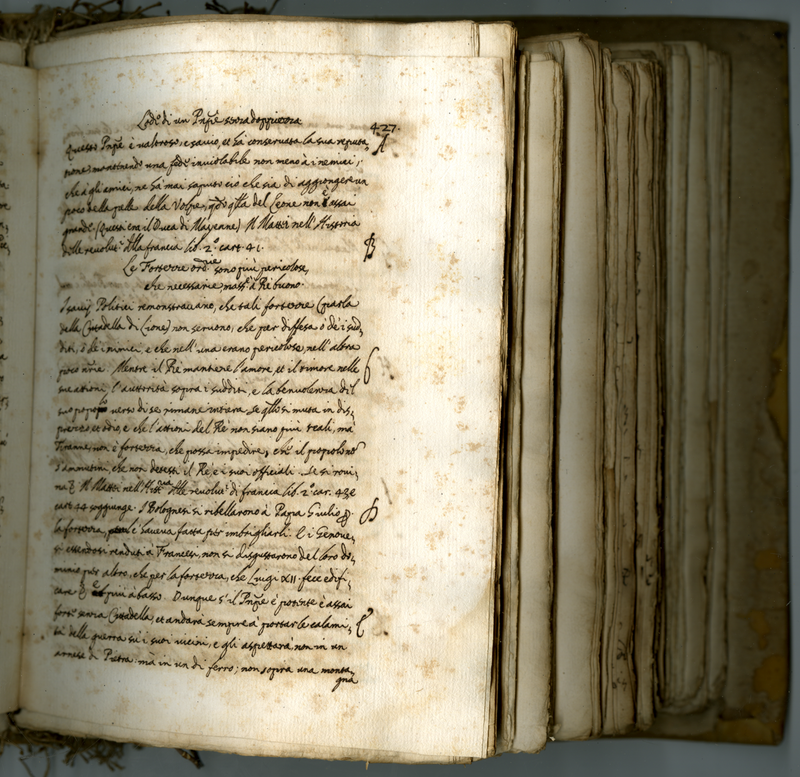 Lode di un Pnpe senza doppiezza
427.
Questo Pnpe è valoroso, e savio, et hà conservata la sua reputa,
A
tione, mantenendo una fede inviolabile non meno à i nemici,
che à gli amici, ne hà mai saputo ciò che sia di aggiongere un
poco della pelle della Volpe, qdo qlla del Leone non è assai
grande. (Questi era il Duca di Mayenne) Il Mattei nell'Historia
delle revolut. della francia lib. 2.° cart. 41.
B
Le Fortezze sono più pericolose,
che necessarie mass. à Re buono.
I savij Politici remonstravano, che tali fortezze (parla
della Cittadella di Lione) non servono, che per diffesa ò de i sud,
diti, ò de i nimici, e che nell'una erano pericolose, nell'altra
poco Mentre il Re mantiene l'amore, et il timore nelle
sue attioni, l'autorità sopra i sudditi, e la benvolenza del
suo popolo verso di se rimane intiera. Se qllo si muta in dis,
prezzo, et odio, e che l'attioni del Re non siano più reali, mà
Tiranne, non è fortezza, che possa impedire, che il popolo non
s'ammutini, che non detesti il Re, e i suoi officiali. Se si rovi,
na Il Mattei nell' delle revolut. di francia lib. 2.° car. 43. e
cart. 44. soggiunge. I Bolognesi si ribellorono à Papa Giulio
la fortezza, che li haveva fatta per imbrigliarli. E i Genove,
D
si essendosi renduti à Francesi, non si disgustarono del loro do,
minio per altro, che per la fortezza, che Luigi XII. fece edifi,
care più à basso. Dunque s'il Pnpe è potente è assai
forte senza Cittadella, et andarà sempre à portar le calami,
E
tà della guerra sù i suoi vicini, e gli aspettarà non in un
arnese di Pietra: mà in un di ferro; non sopra una monta,
gna